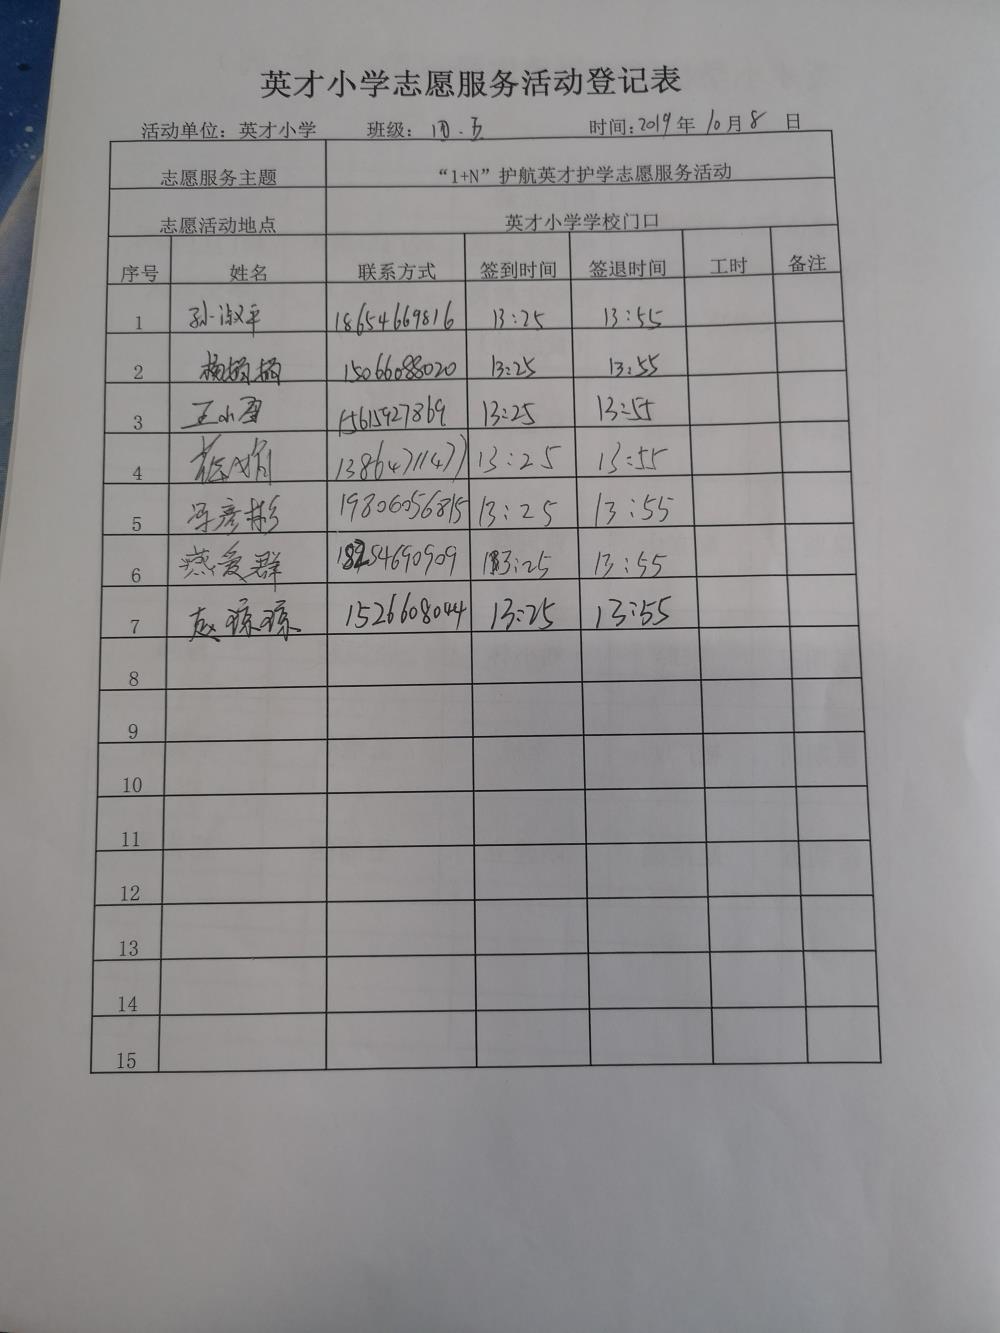 英才小学志愿服务活动登记表
活动单位：英才小学 班级：四.五 时间：2019年10月8日
志愿服务主题 “1+N”护航英才护学志愿服务活动
志愿活动地点 英才小学学校门口
序号 姓名 联系方式 签到时间 签退时间 工时 备注
1 孙淑平 18654669816 13:25 13:55
2 15066088020 13:25 13:55
3 王小 15615927869 13:25 13:55
4 13864711477 13:25 13:55
5 冯彦彬 19806056815 13:25 13:55
6 燕爱群 18254690909 13:25 13:55
7 赵琼琼 1526608044 13:25 13:55
8
9
10
11
12
13
14
15